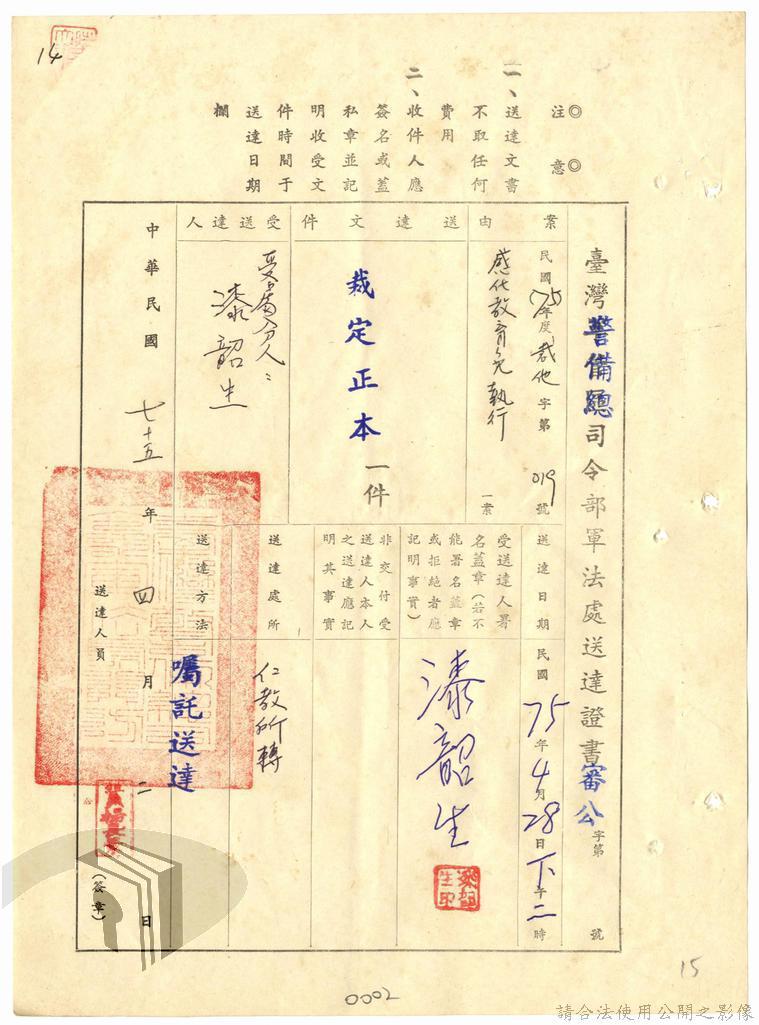 14
注意
◎◎
一、送達文書
不取任何
費用
二、收件人應
簽名或蓋
私章並記
明收受文
件時間于
送達日期
欄
臺灣警備總司令部軍法處送達證書審公字第 號
案由
民國75年度裁他字第019號
感化教育免執行
一案
送達文件
裁定正本一件
受送達人
受處分人:
漆韶生
送達日期
民國75年4月28日下午二時
受送達人署
名蓋章(若不
能署名蓋章
或拒絕者應
記明事實)
漆韶生
非交付受
送達人本人
之送達應記
明其事實
送達處所
仁教所轉
送達方法
囑託送達
中華民國七十五年四月二日
送達人員
(簽章)
15
0002
請合法使用公開之影像